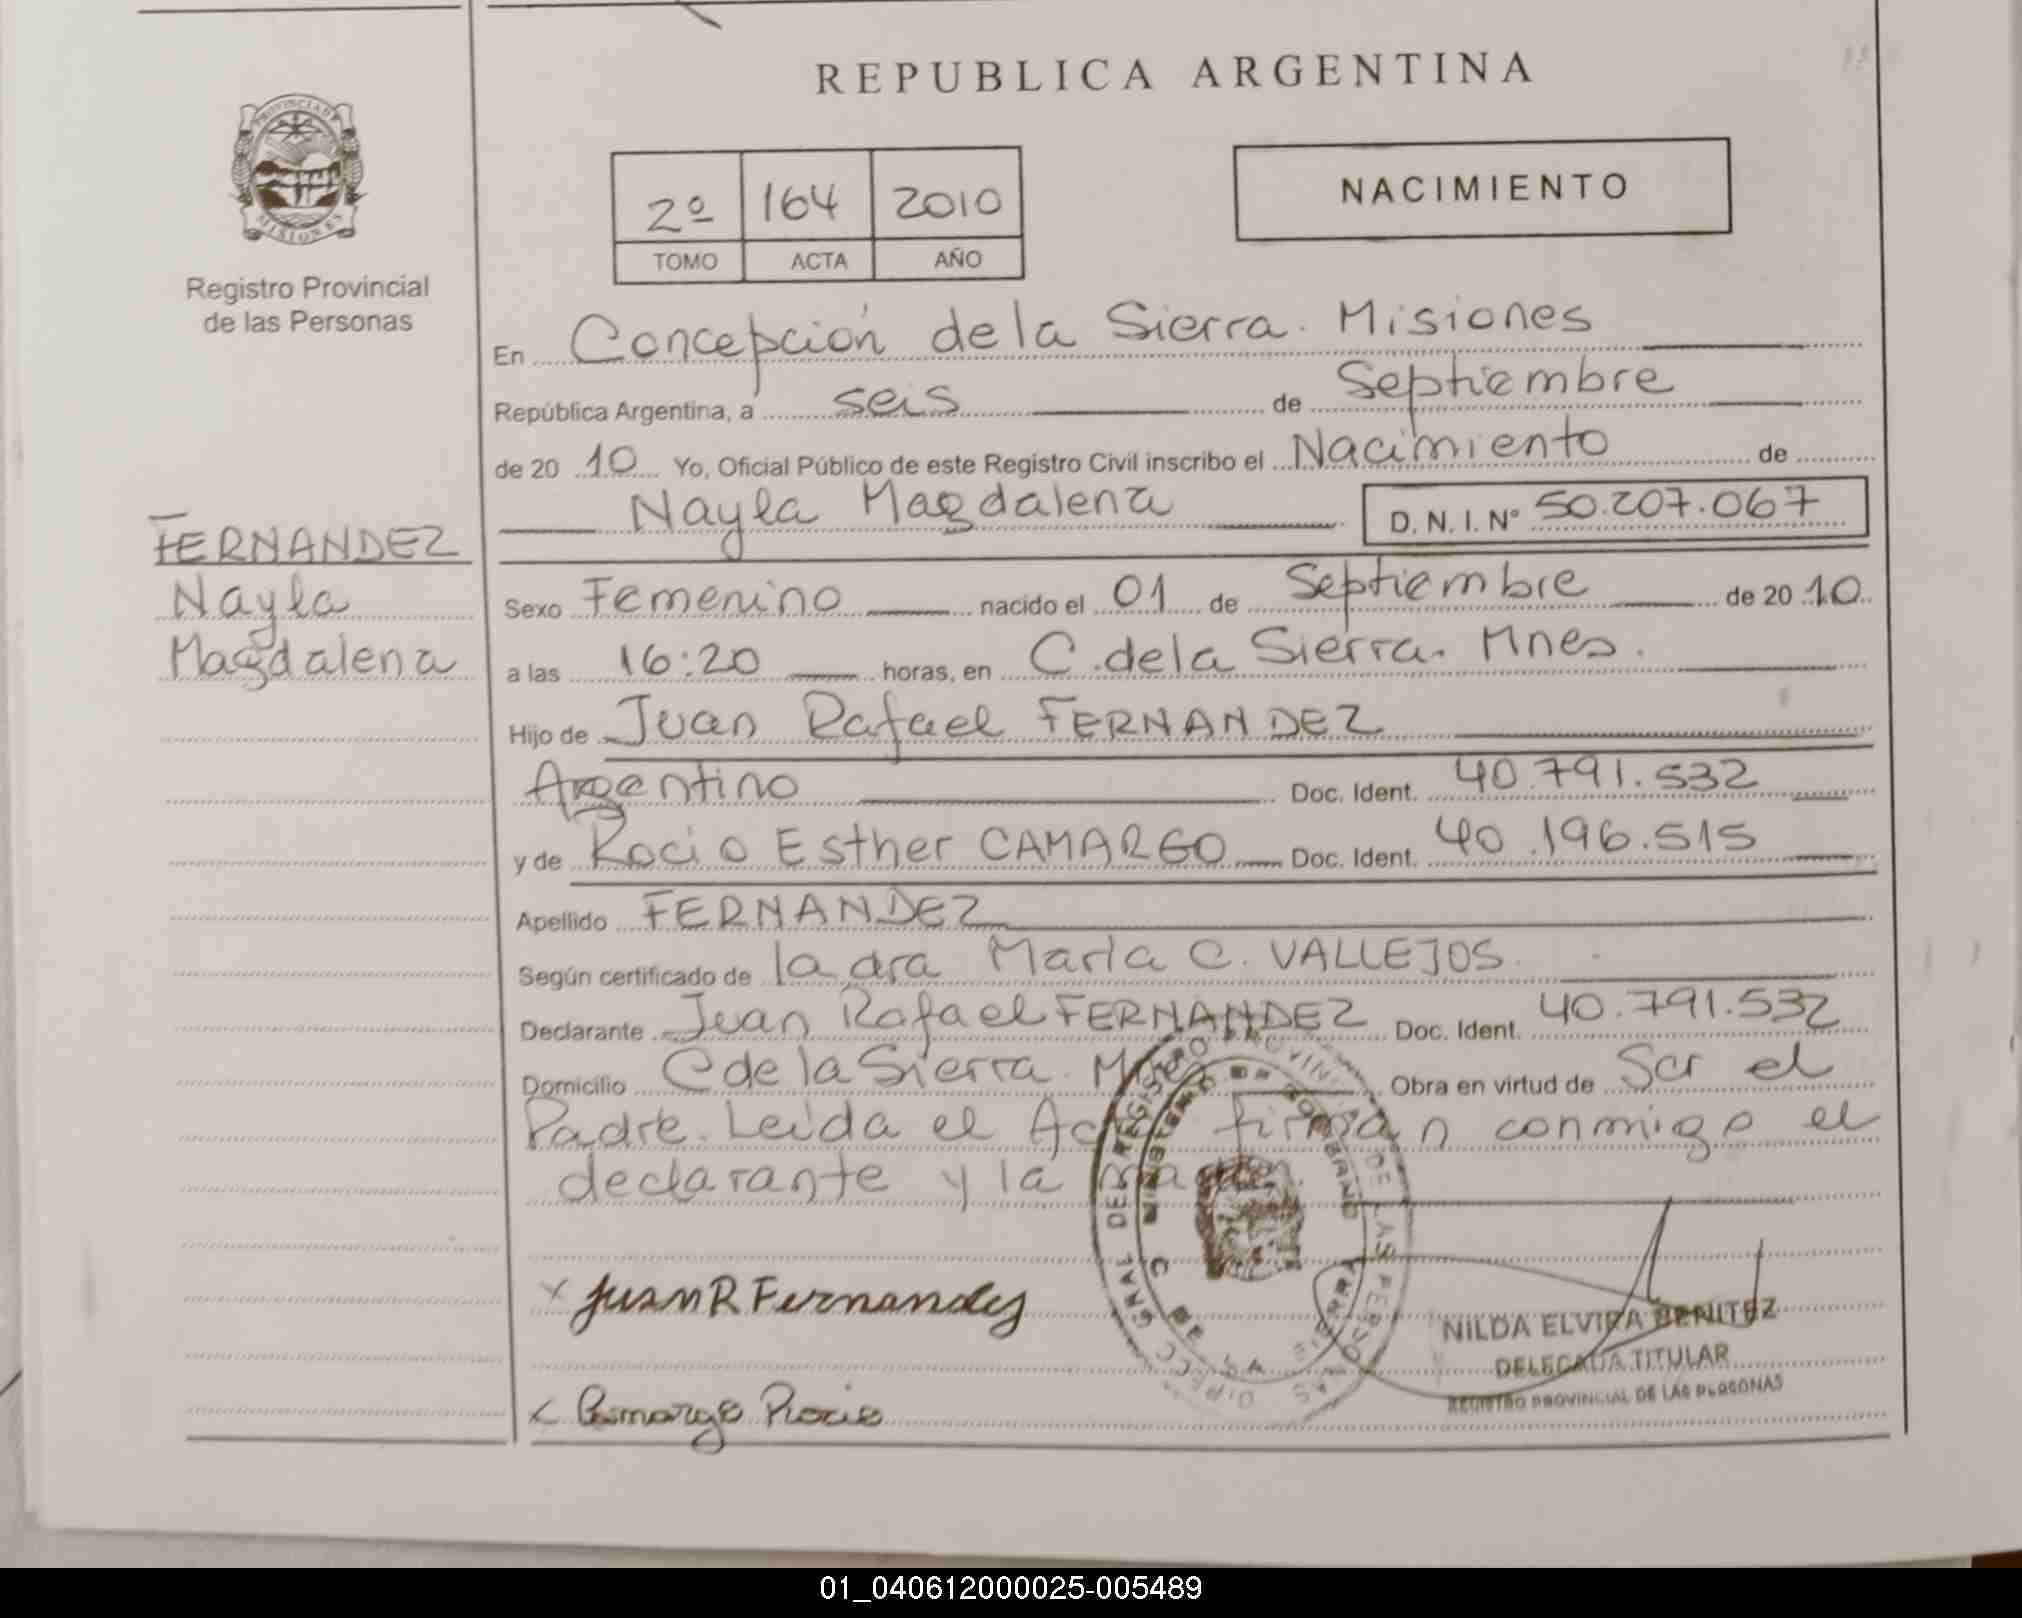 REPUBLICA ARGENTINA
PROVINCIA DE MISIONES
Registro Provincial
de las Personas
2º 164 2010
TOMO ACTA AÑO
NACIMIENTO
En Concepción de la Sierra. Misiones
República Argentina, a seis de Septiembre
de 20 10 Yo, Oficial Público de este Registro Civil inscribo el Nacimiento de
Nayla Magdalena D. N. I. Nº 50.207.067
FERNANDEZ
Nayla
Magdalena
Sexo Femenino nacido el 01 de Septiembre de 20 10
a las 16:20 horas, en C. de la Sierra. Mnes.
Hijo de Juan Rafael FERNANDEZ
Argentino Doc. Ident. 40.791.532
y de Rocio Esther CAMARGO Doc. Ident. 40.196.515
Apellido FERNANDEZ
Según certificado de la dra María C. VALLEJOS.
Declarante Juan Rafael FERNANDEZ Doc. Ident. 40.791.532
Domicilio C de la Sierra. Obra en virtud de Ser el
Padre. Leida el firman conmigo el
declarante y la madre.
x Juan R Fernandez
NILDA ELVIRA BENITEZ
DELEGADA TITULAR
REGISTRO PROVINCIAL DE LAS PERSONAS
x Camargo Rocio
01_040612000025-005489